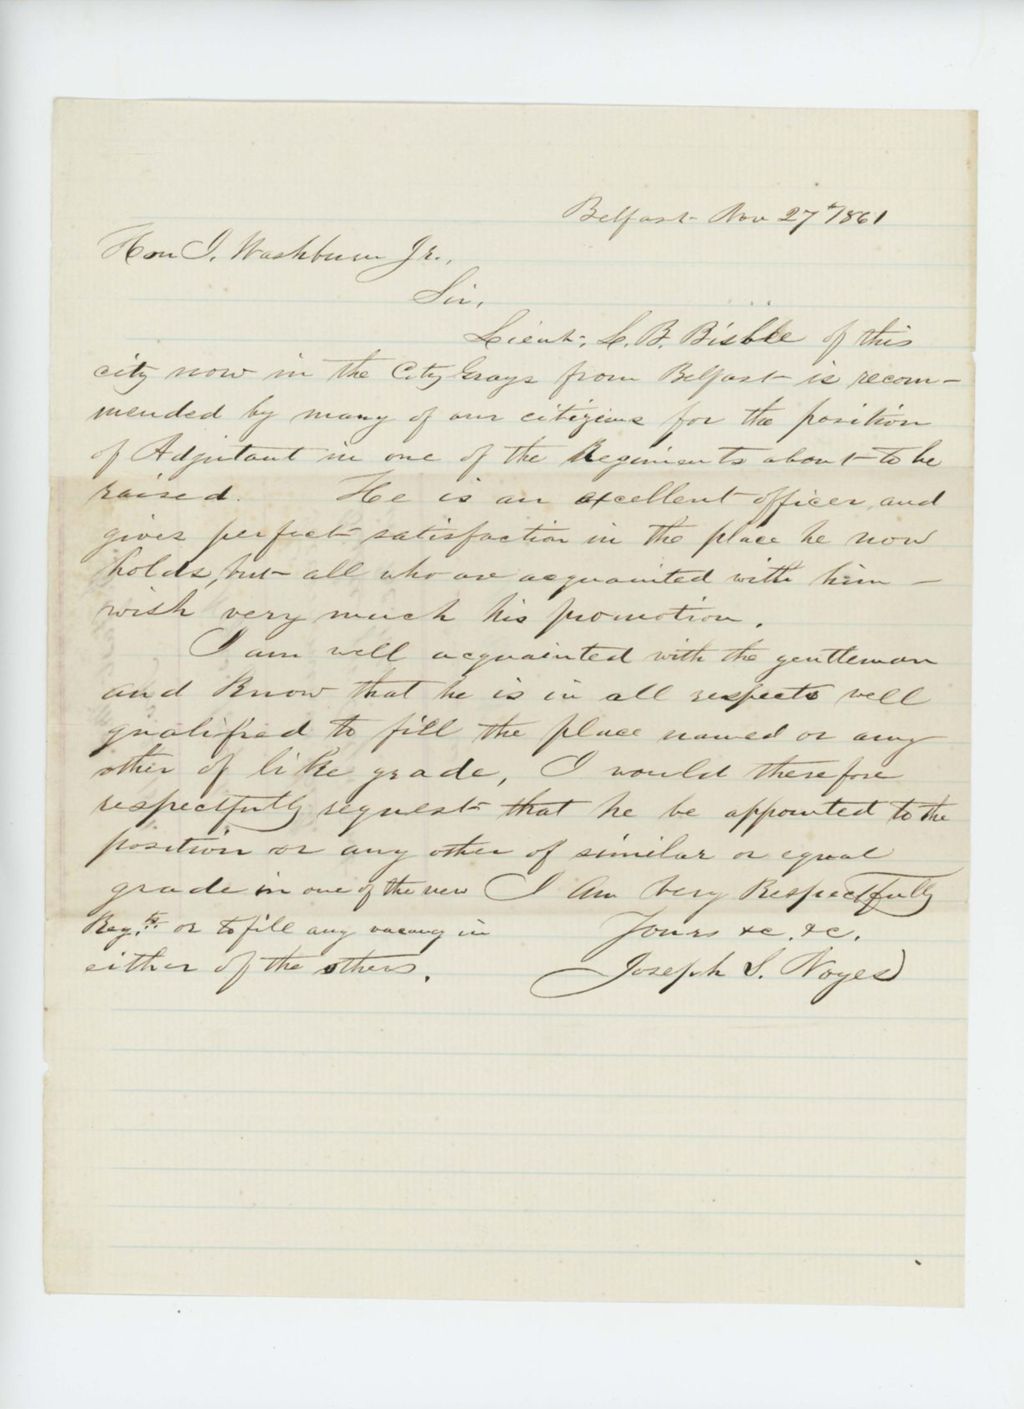 Belfast Nov 27th 1861
Hon I. Washburn Jr.,
Sir,
Lieut. L. B. Bisbee of this
city now in the City Grays from Belfast is recom-
mended by many of our citizens for the position
of Adjutant in one of the Regiments about to be
raised. He is an excellent officer, and
gives perfect satisfaction in the place he now
holds, but all who are acquainted with him -
wish very much his promotion.
I am well acquainted with the gentleman
and Know that he is in all respects well
qualified to fill the place named or any
other of like grade, I would therefore
respectfully request that he be appointed to the
position or any other of similar or equal
grade in one of the new I Am Very Respectfully
Regts. or to fill any vacancy in Yours &c. &c.
either of the others. Joseph S. Noyes